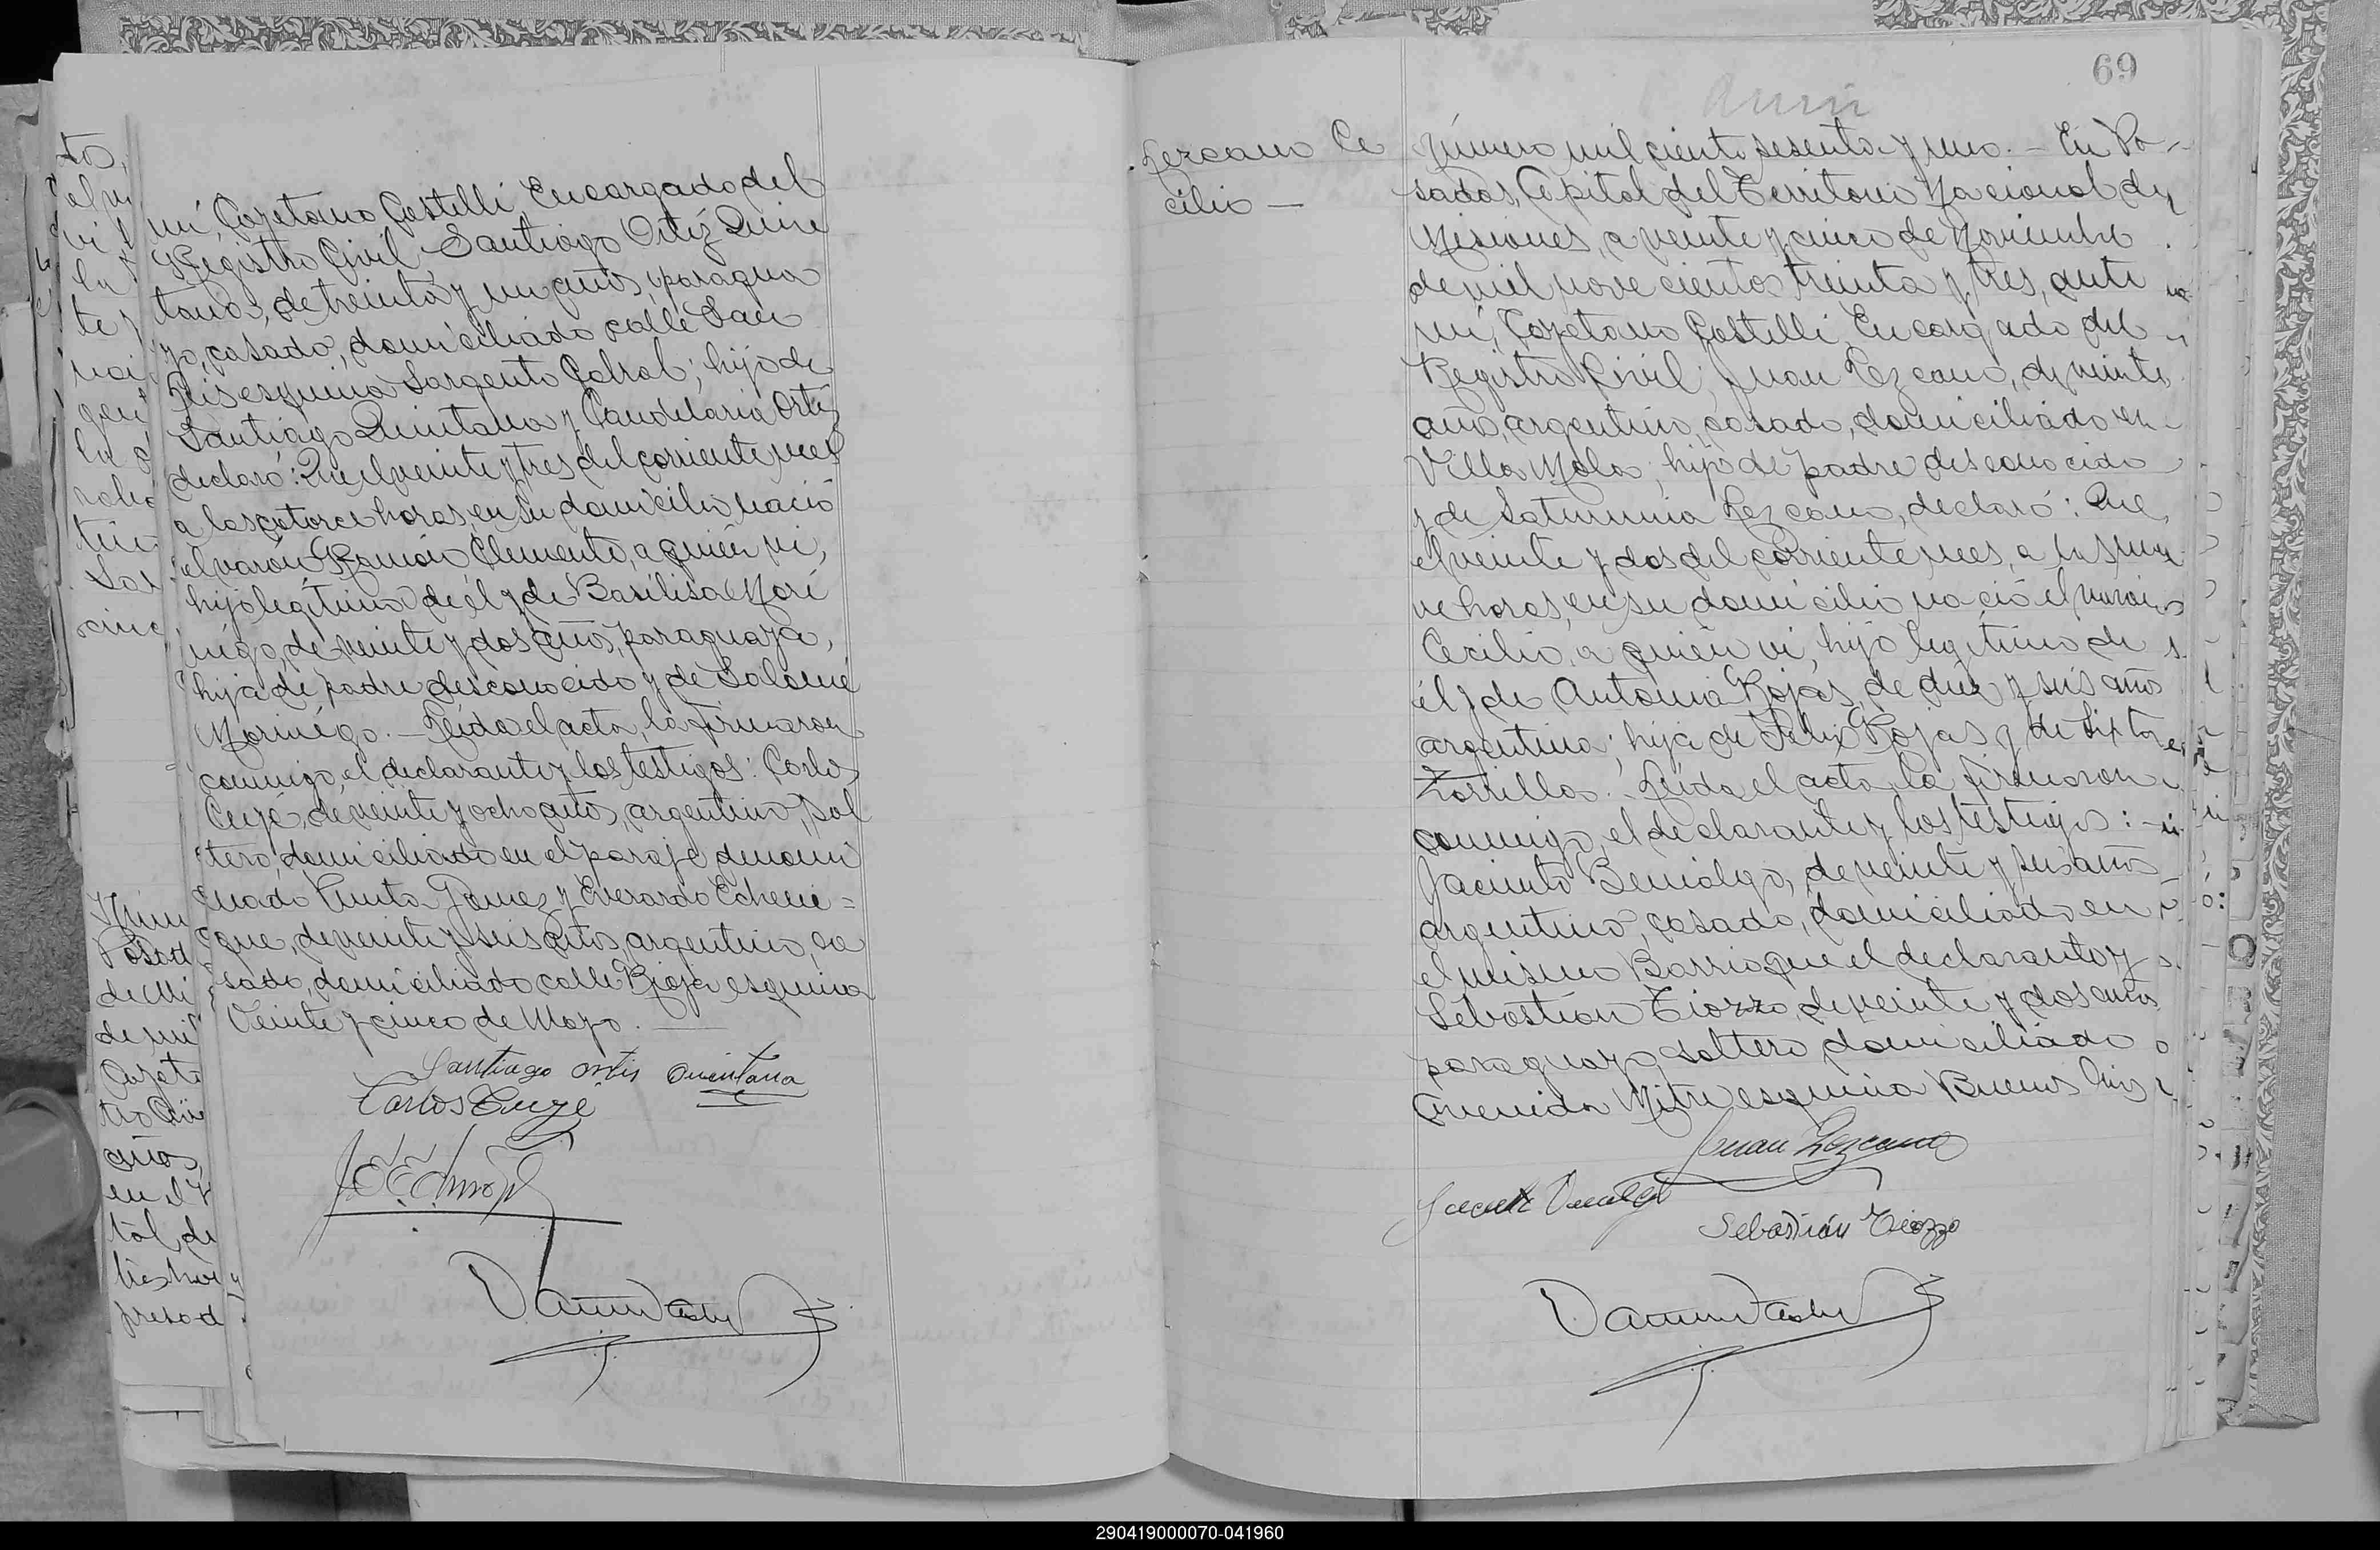 mí, Cayetano Castelli Encargado del
Registro Civil Santiago Ortíz Quin
tana, de treinta y un años, paragua
yo, casado, domiciliado calle San
Luis esquina Sargento Cabral; hijo de
Santiago Quintana y Candelaria Ortíz
declaró: Que el veinte y tres del corriente mes
a las catorce horas, en su domicilio nació
el varón Ramón Clemente, a quién ví,
hijo legítimo de él y de Basilisa Mori
nigo, de veinte y dos años, paraguaya,
hija de padre desconocido y de Salomé
Morinigo. — Leída el acta, la firmaron
conmigo, el declarante y los testigos: Carlos
de veinte y ocho años, argentino, sol
tero, domiciliado en el paraje denomi
nado Punta Gomez y Everardo Echeve=
que, de veinte y seis años, argentino, ca
sado, domiciliado calle Rioja esquina
Veinte y cinco de Mayo. —
Santiago Ortis Quintana
Carlos
69
Lezcano Ce
cilio —
Número mil ciento sesenta y uno. — En Po-
sadas, Capital del Territorio Nacional de
Misiones, a veinte y cinco de Noviembre
de mil nove cientos treinta y tres, ante
mí, Cayetano Castelli, Encargado del
Registro Civil, Juan Lezcano, de veinte
años, argentino, casado, domiciliado en
Villa Mola; hijo de padre desconocido
y de Saturnina Lezcano, declaró: Que,
el veinte y dos del corriente mes, a las nue
ve horas, en su domicilio nació el varón
Cecilio, a quién ví, hijo legítimo de
él y de Antonia Rojas, de diez y seis años
argentina; hija de Felix Rojas y de Sixta
Zorrilla. Leída el acta, la firmaron
conmigo, el declarante y los testigos: —
Jacinto de veinte y seis años
argentino, casado, domiciliado en
el mismo Barrio que el declarante y
Sebastián Tiozzo, de veinte y dos años
paraguayo, soltero domiciliado
Avenida Mitre esquina Buenos Aires
Juan Lezcano
Sebastián Tiozzo
290419000070-041960